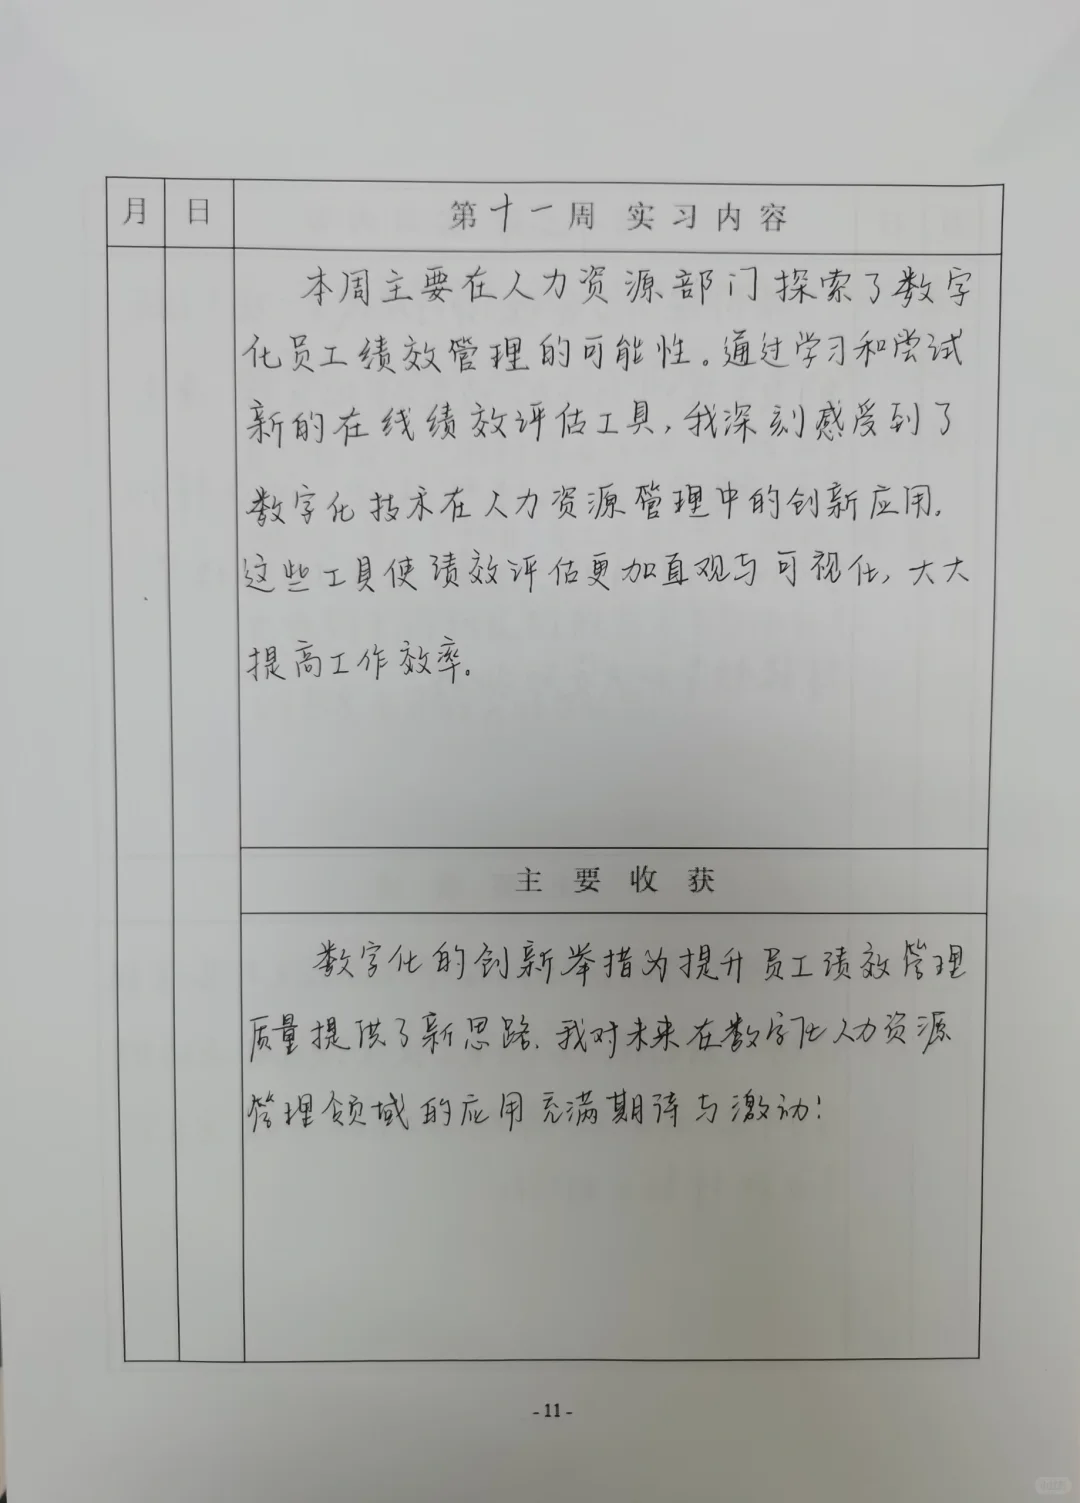 月 日 第十一周 实习内容
本周主要在人力资源部门探索了数字
化员工绩效管理的可能性。通过学习和尝试
新的在线绩效评估工具,我深刻感受到了
数字化技术在人力资源管理中的创新应用.
这些工具使绩效评估更加直观与可视化,大大
提高工作效率。
主要收获
数字化的创新举措为提升员工绩效管理
质量提供了新思路.我对未来在数字化人力资源
管理领域的应用充满期待与激动!
- 11 -